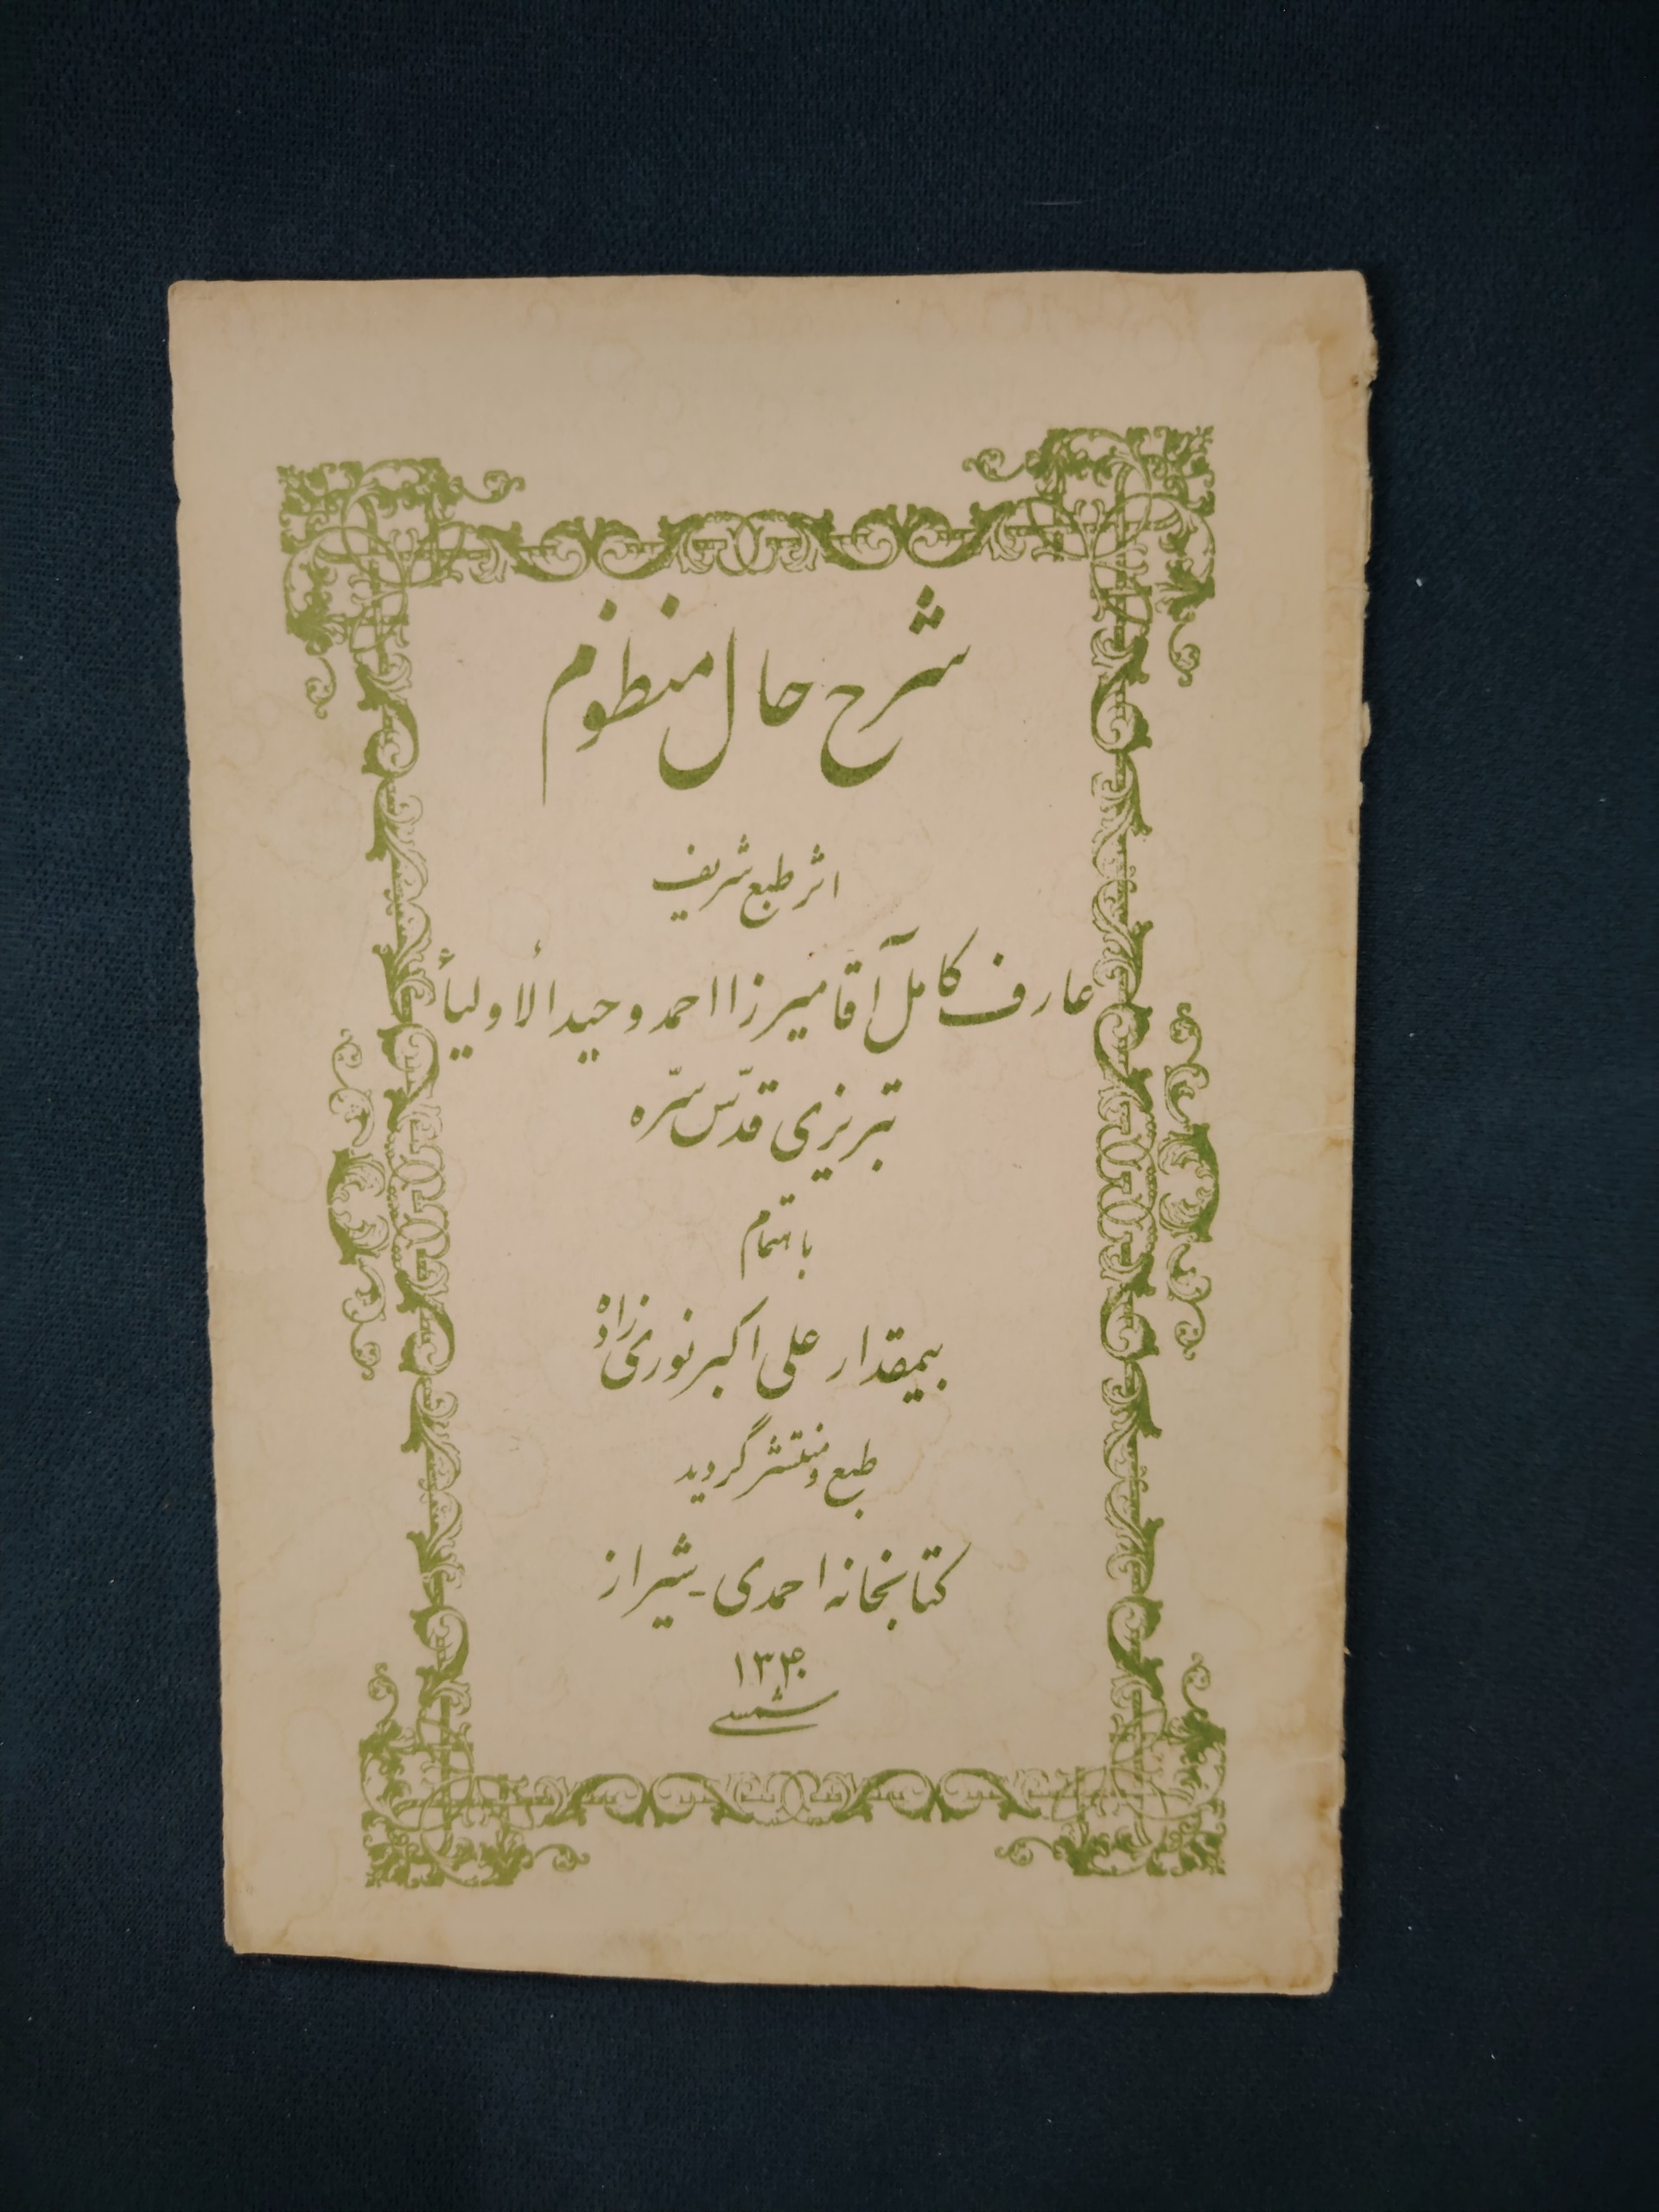 شرح حال منظوم
اثر طبع شریف
عارف کامل آقا میرزا احمد وحید الأولیأ
تبریزی قدّس سرّه
باهتمام
بیمقدار علی اکبر نوری زاده
طبع و منتشر گردید
کتابخانه احمدی - شیراز
۱۳۴۰
شمسی